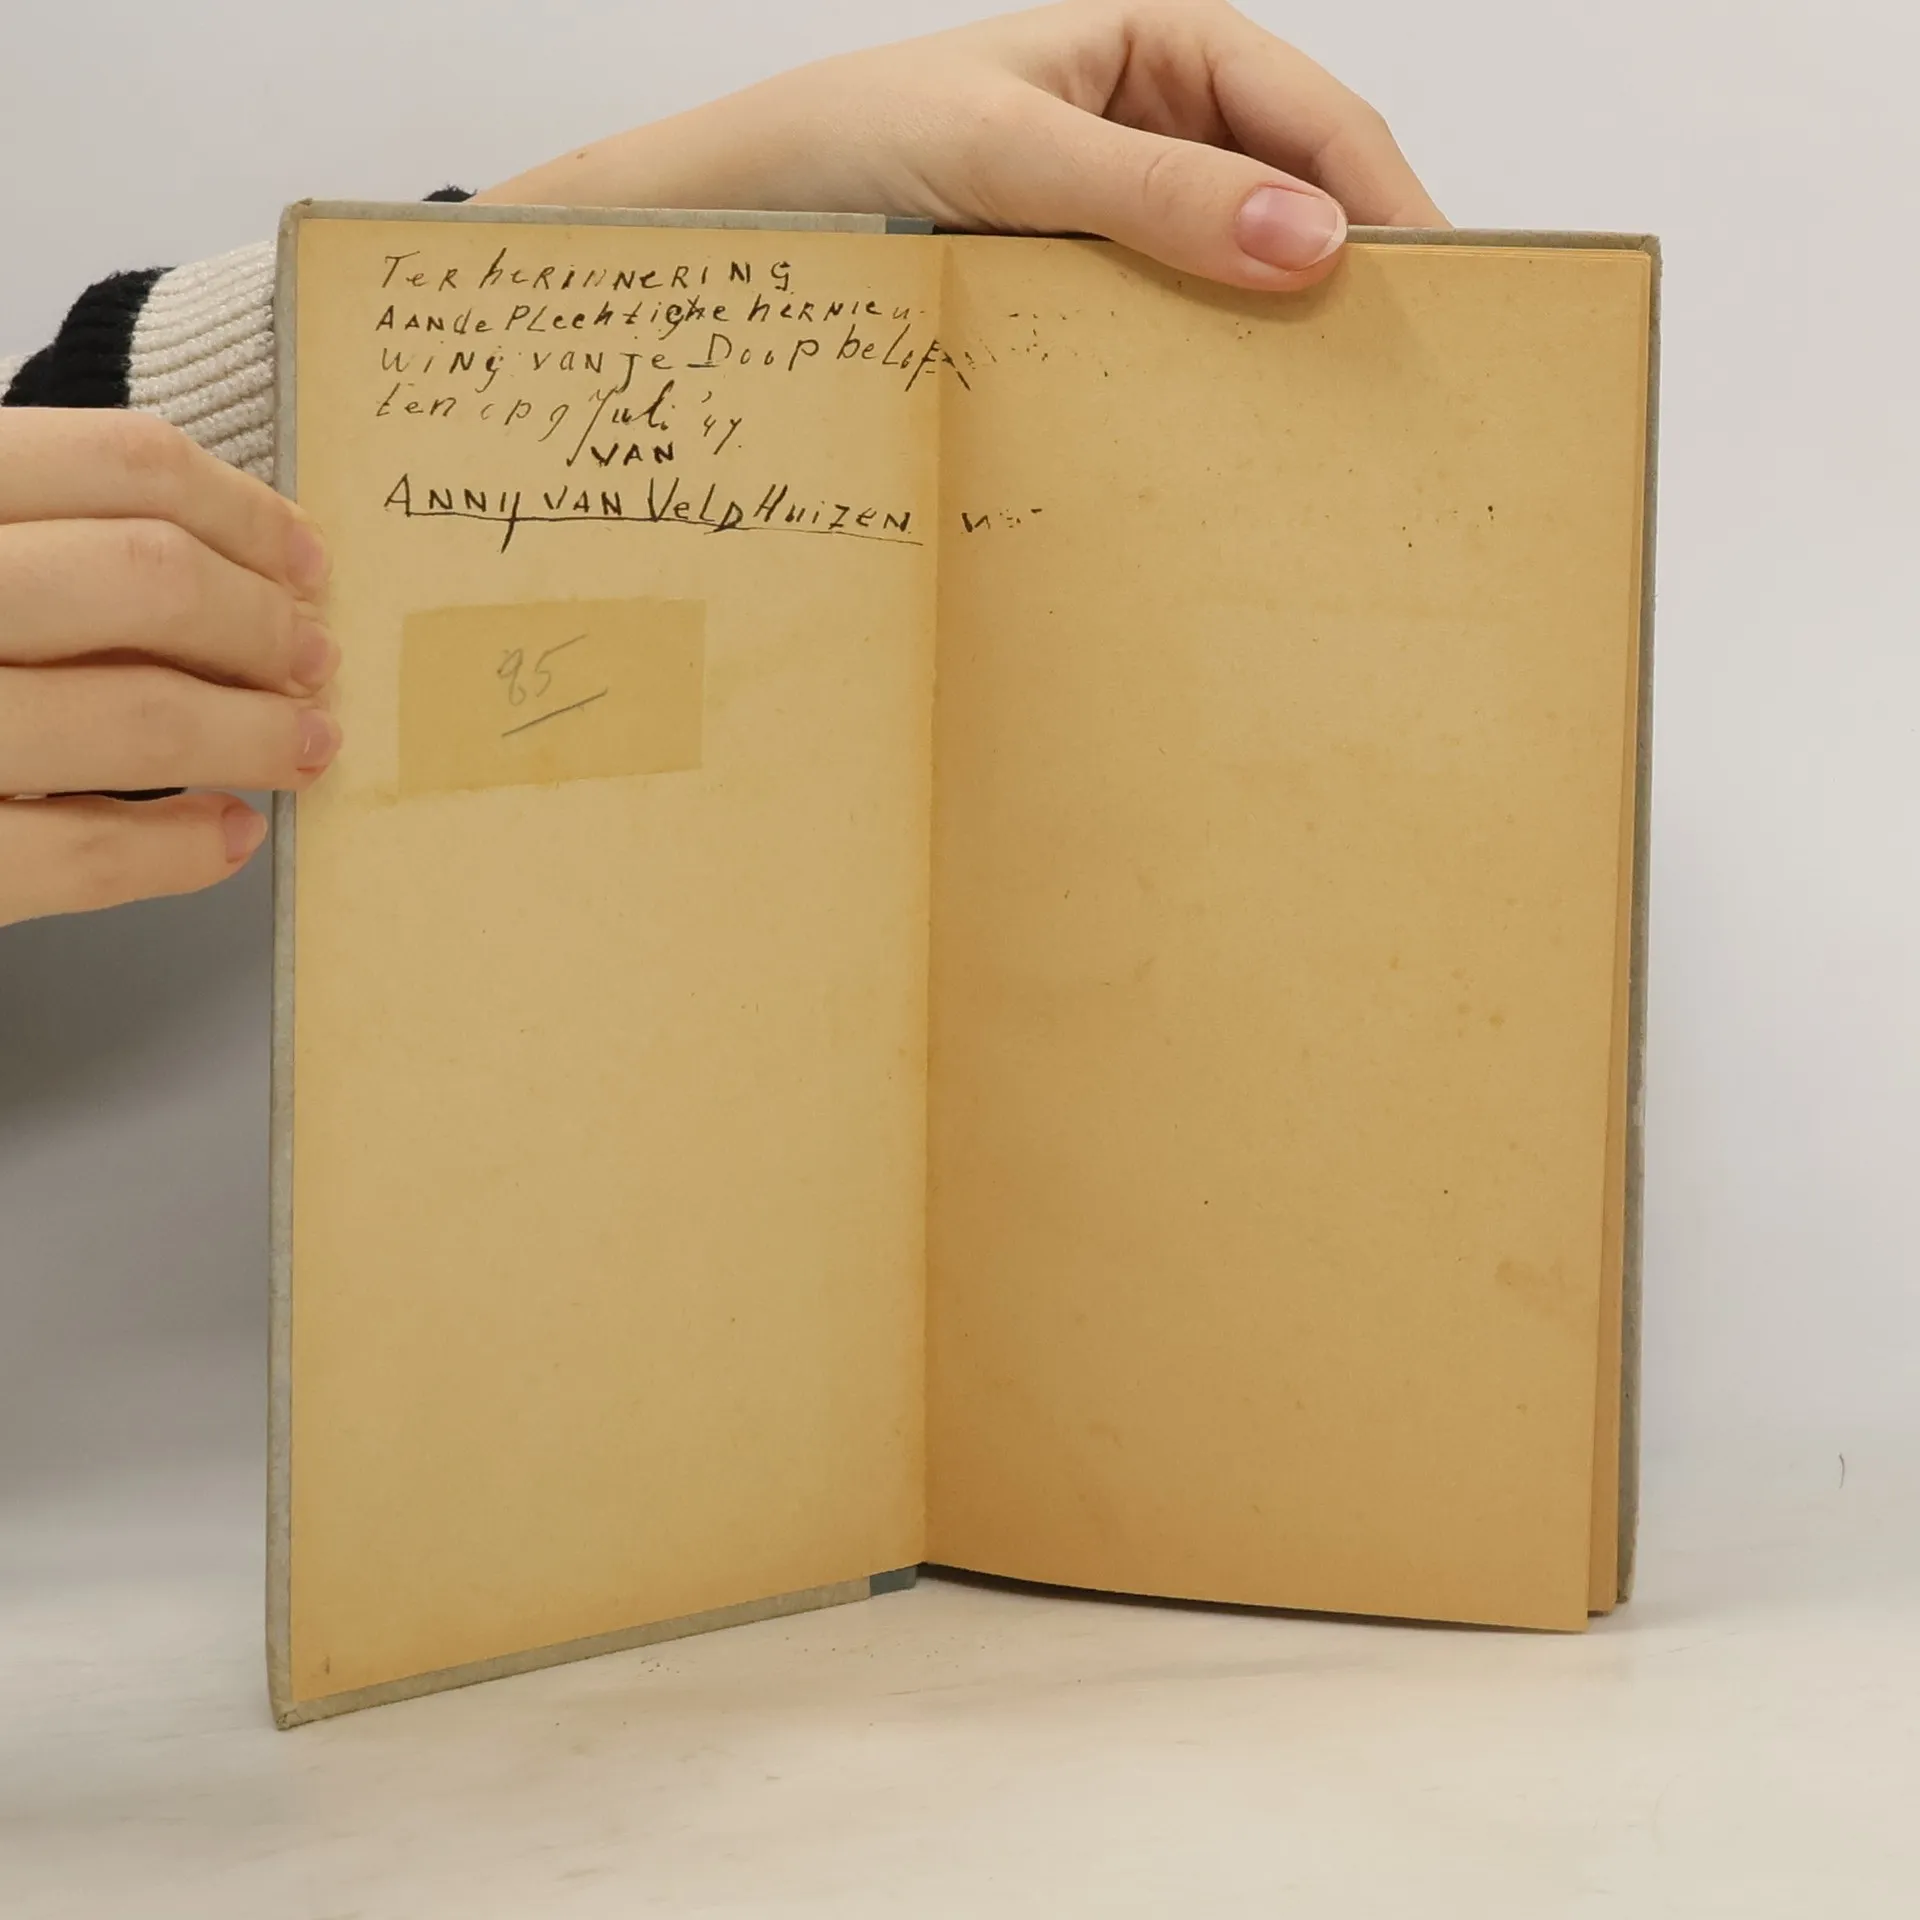 Ter herinnering
aan de plechtighe hernieu-
wing van je Doopbelof
ten op 9 Juli '47.
van
Annij van Veldhuizen.
85